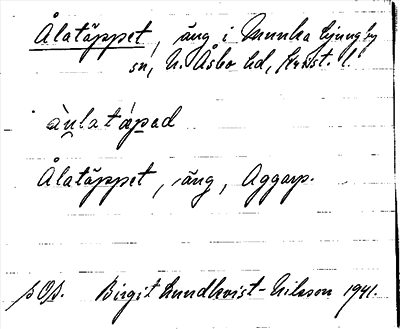 Ålatäppet, äng i Munka Ljungby
sn, N. Åsbo hd, Krist. l.
àu̱latápəd
Ålatäppet, äng, Aggarp.
Birgit Lundkvist-Nilsson 1941.